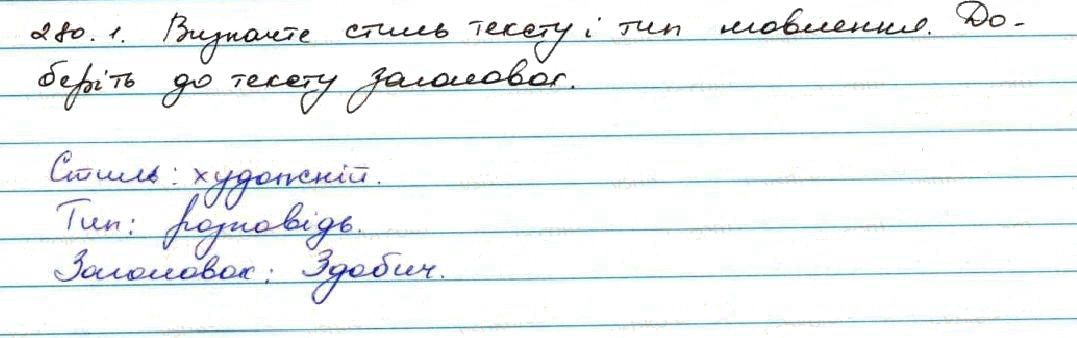 280. 1. Визначте стиль тексту і тип мовлення. До-
беріть до тексту заголовок.
Стиль: художній.
Тип: розповідь.
Заголовок: Здобич.